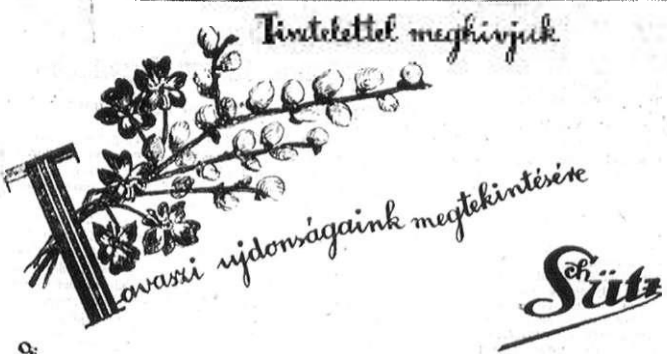 Tisztelettel meghivjuk
Tavaszi ujdonságaink megtekintésére
Schütz